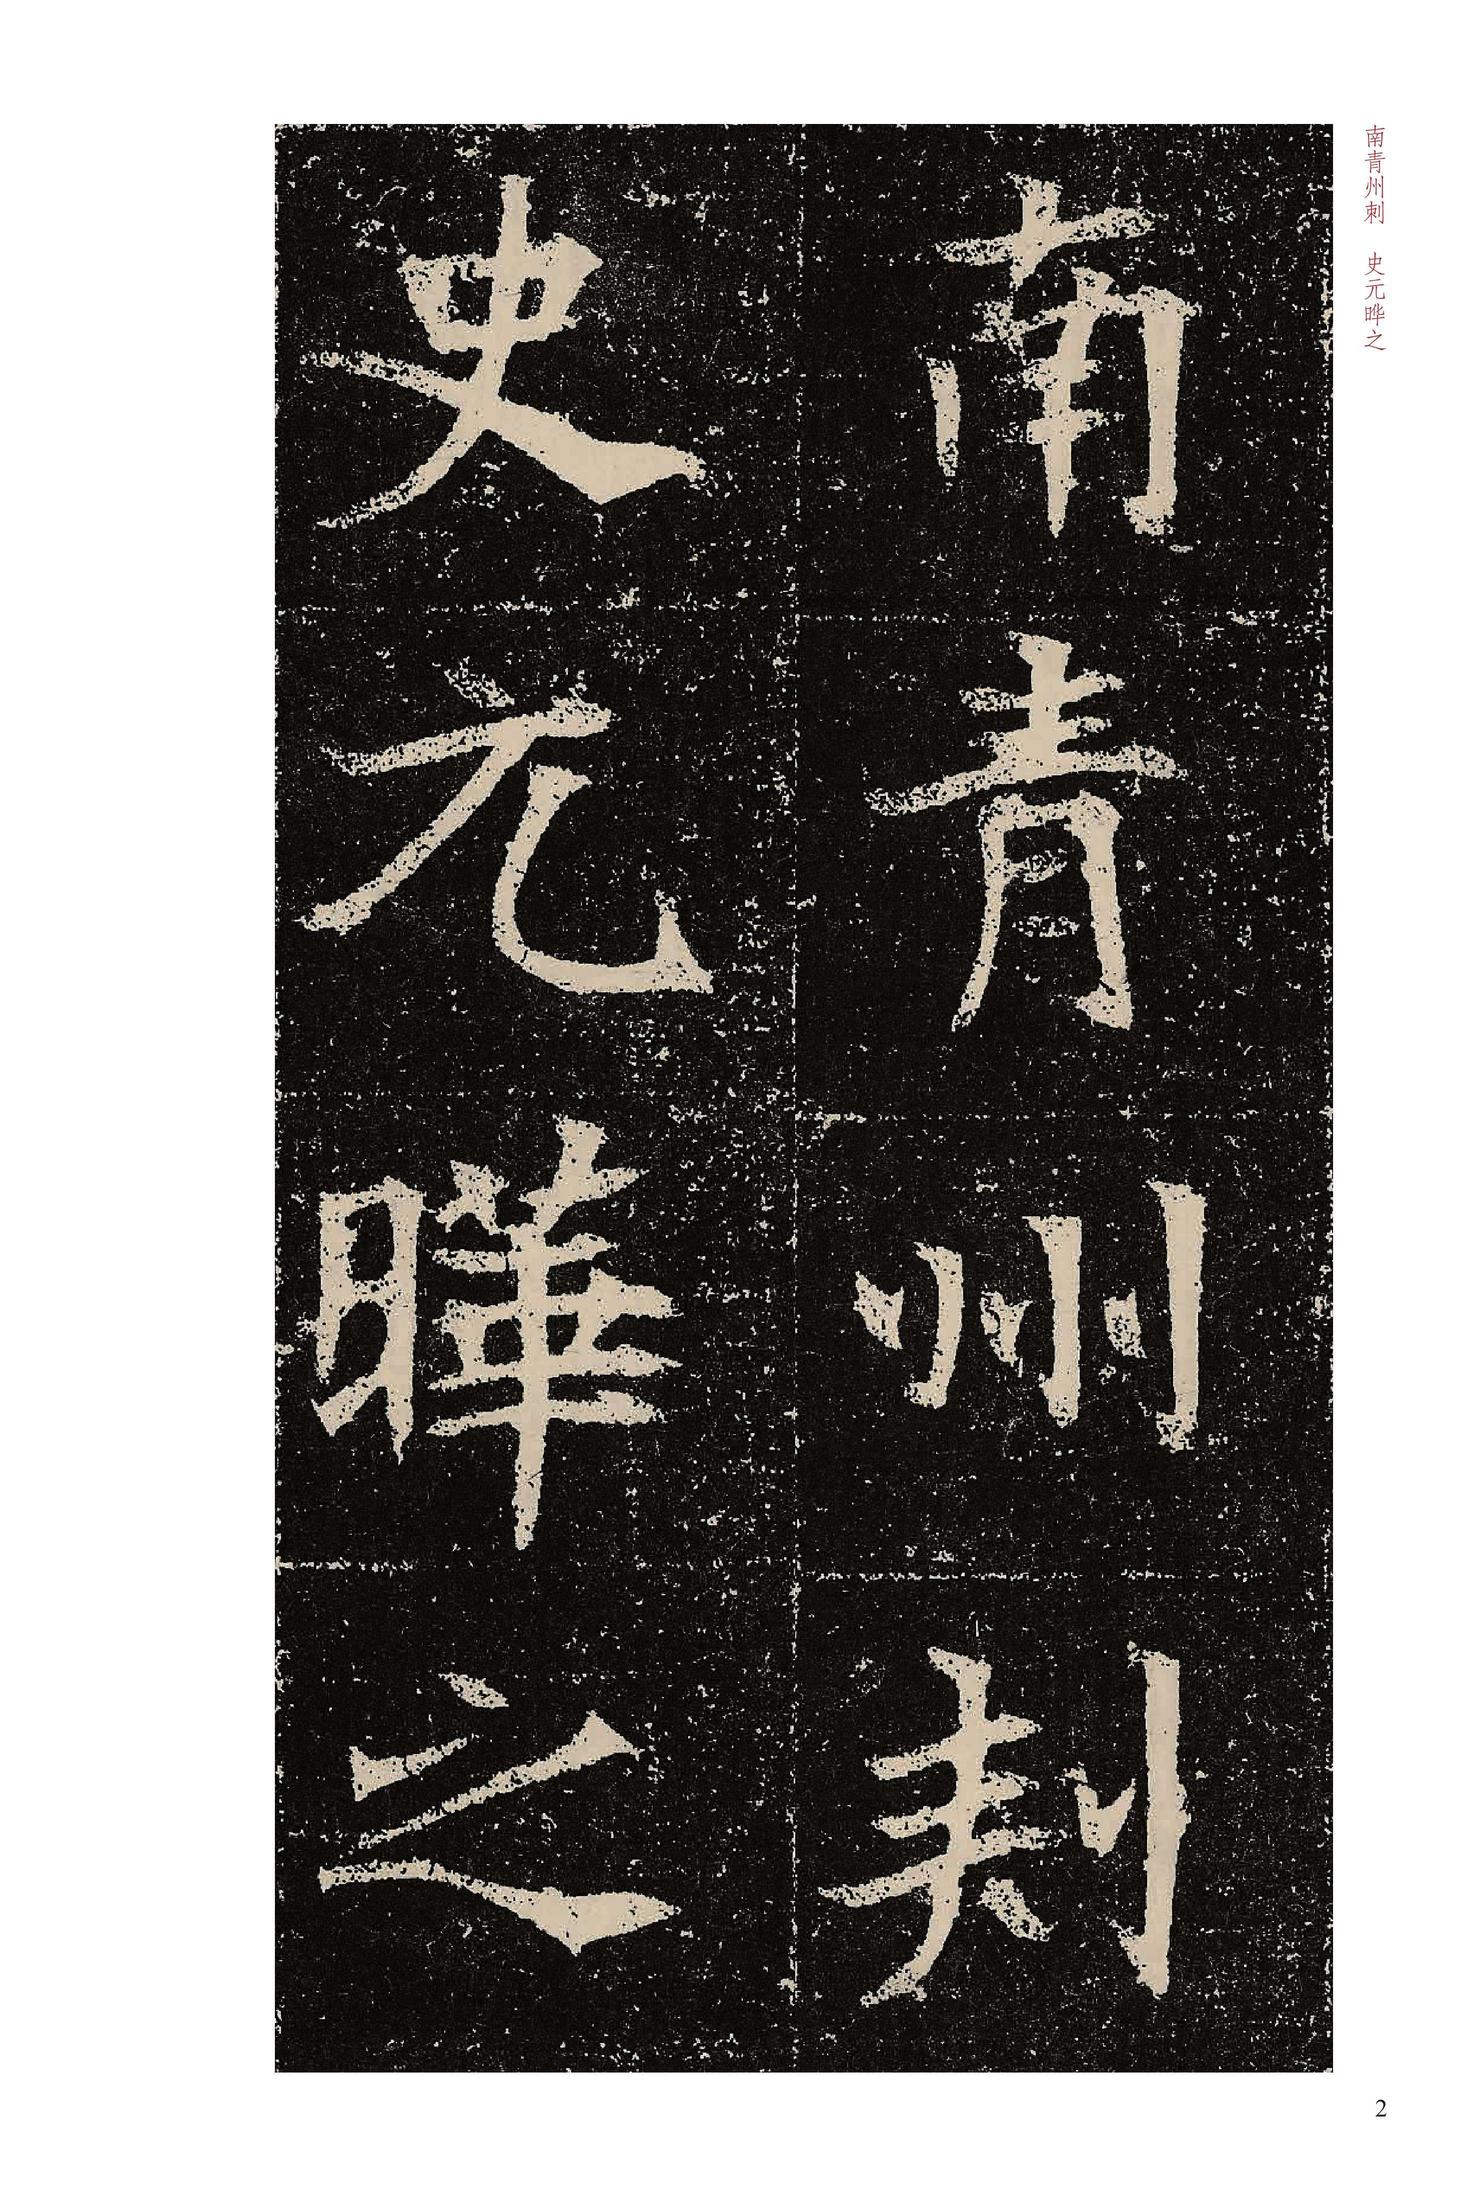 南青州刺　史元晔之
南青州刾
史元曄之
2